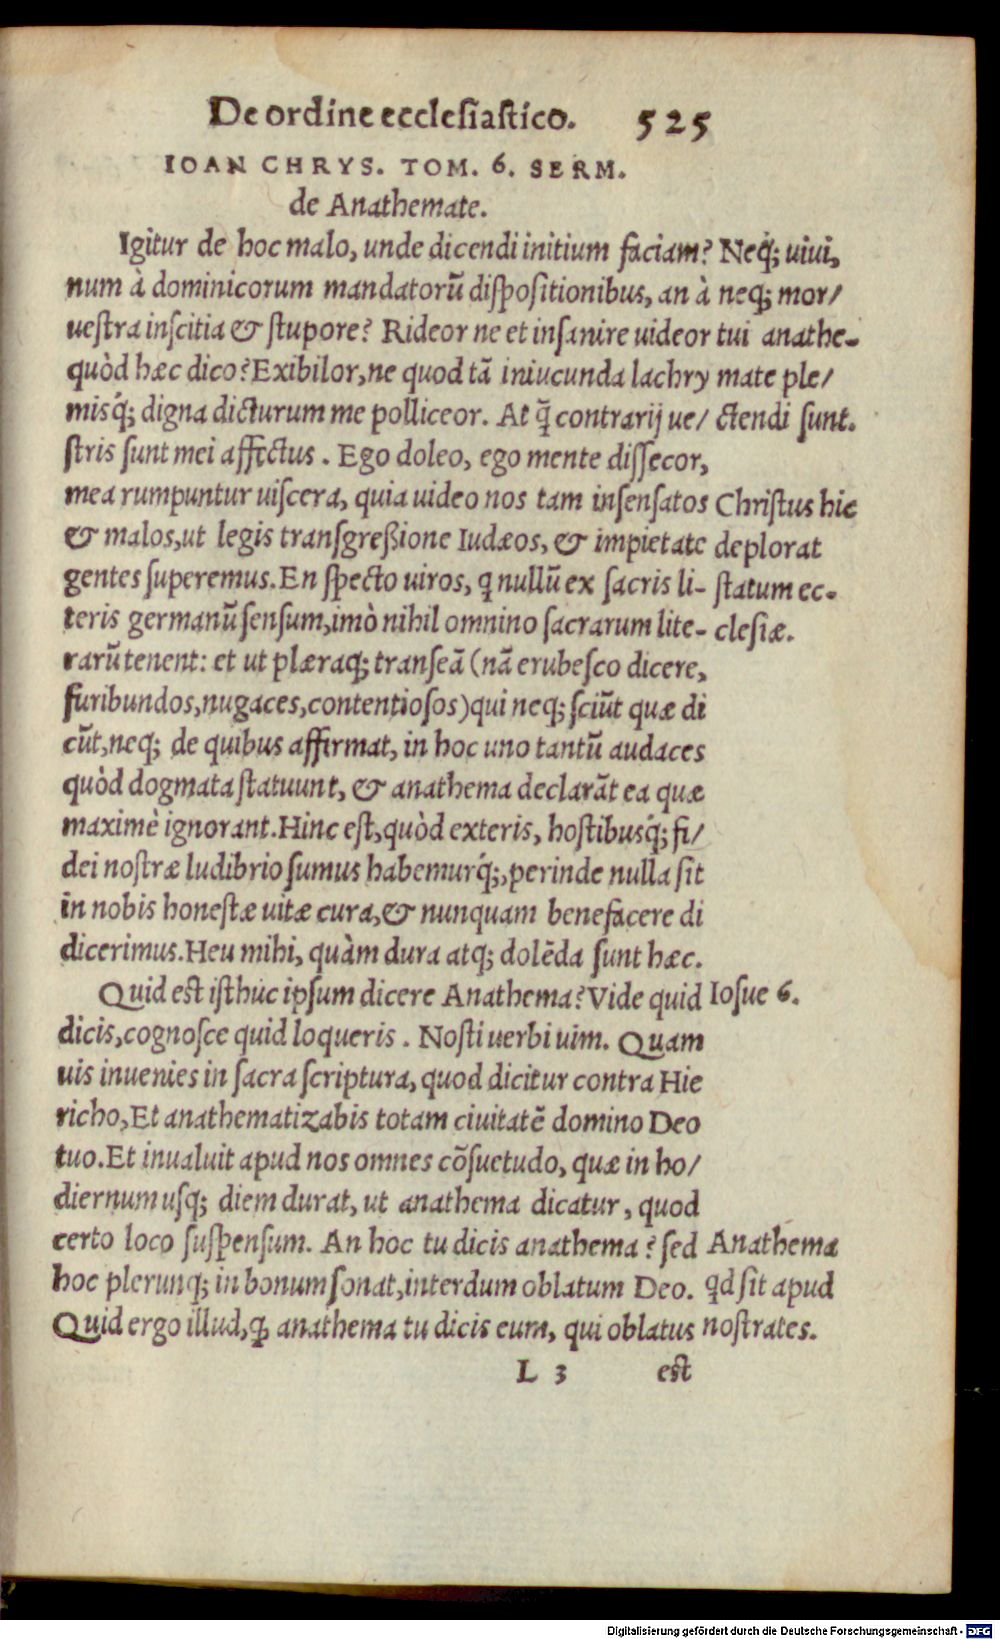 De ordine ecclesiastico. 525
IOAN CHRYS. TOM. 6. SERM.
de Anathemate.
Igitur de hoc malo, unde dicendi initium faciam?
num à dominicorum mandatorũ dispositionibus, an à
uestra inscitia & stupore? Rideor ne et insanire uideor
quòd hæc dico? Exibilor, ne quod tã iniucunda lachry
misq́; digna dicturum me polliceor. At q̃ contrarij ue/
stris sunt mei affectus. Ego doleo, ego mente dissecor,
mea rumpuntur uiscera, quia uideo nos tam insensatos
& malos, ut legis transgreßione Iudæos, & impietate
gentes superemus. En specto uiros, q nullũ ex sacris li-
teris germanũ sensum, imò nihil omnino sacrarum lite-
rarũ tenent: et ut plæraq; transeã (nã erubesco dicere,
furibundos, nugaces, contentiosos) qui neq; sciũt quæ di
cũt, neq; de quibus affirmat, in hoc uno tantũ audaces
quòd dogmata statuunt, & anathema declarãt ea quæ
maximè ignorant. Hinc est, quòd exteris, hostibusq́; fi/
dei nostræ ludibrio sumus habemurq́;, perinde nulla sit
in nobis honestæ uitæ cura, & nunquam benefacere di
dicerimus. Heu mihi, quàm dura atq; dolẽda sunt hæc.
Quid est isthuc ipsum dicere Anathema? Vide quid
dicis, cognosce quid loqueris. Nosti uerbi uim. Quam
uis inuenies in sacra scriptura, quod dicitur contra Hie
richo, Et anathematizabis totam ciuitatẽ domino Deo
tuo. Et inualuit apud nos omnes cõsuetudo, quæ in ho/
diernum usq; diem durat, ut anathema dicatur, quod
certo loco suspensum. An hoc tu dicis anathema? sed
hoc plerunq; in bonum sonat, interdum oblatum Deo.
Quid ergo illud, ꝙ anathema tu dicis eum, qui oblatus
L 3 est
Neq́; uiui,
neq; mor/
tui anathe-
mate ple/
ctendi sunt.
Christus hic
deplorat
statum ec-
clesiæ.
Iosue 6.
Anathema
qd sit apud
nostrates.
Digitalisierung gefördert durch die Deutsche Forschungsgemeinschaft - DFG